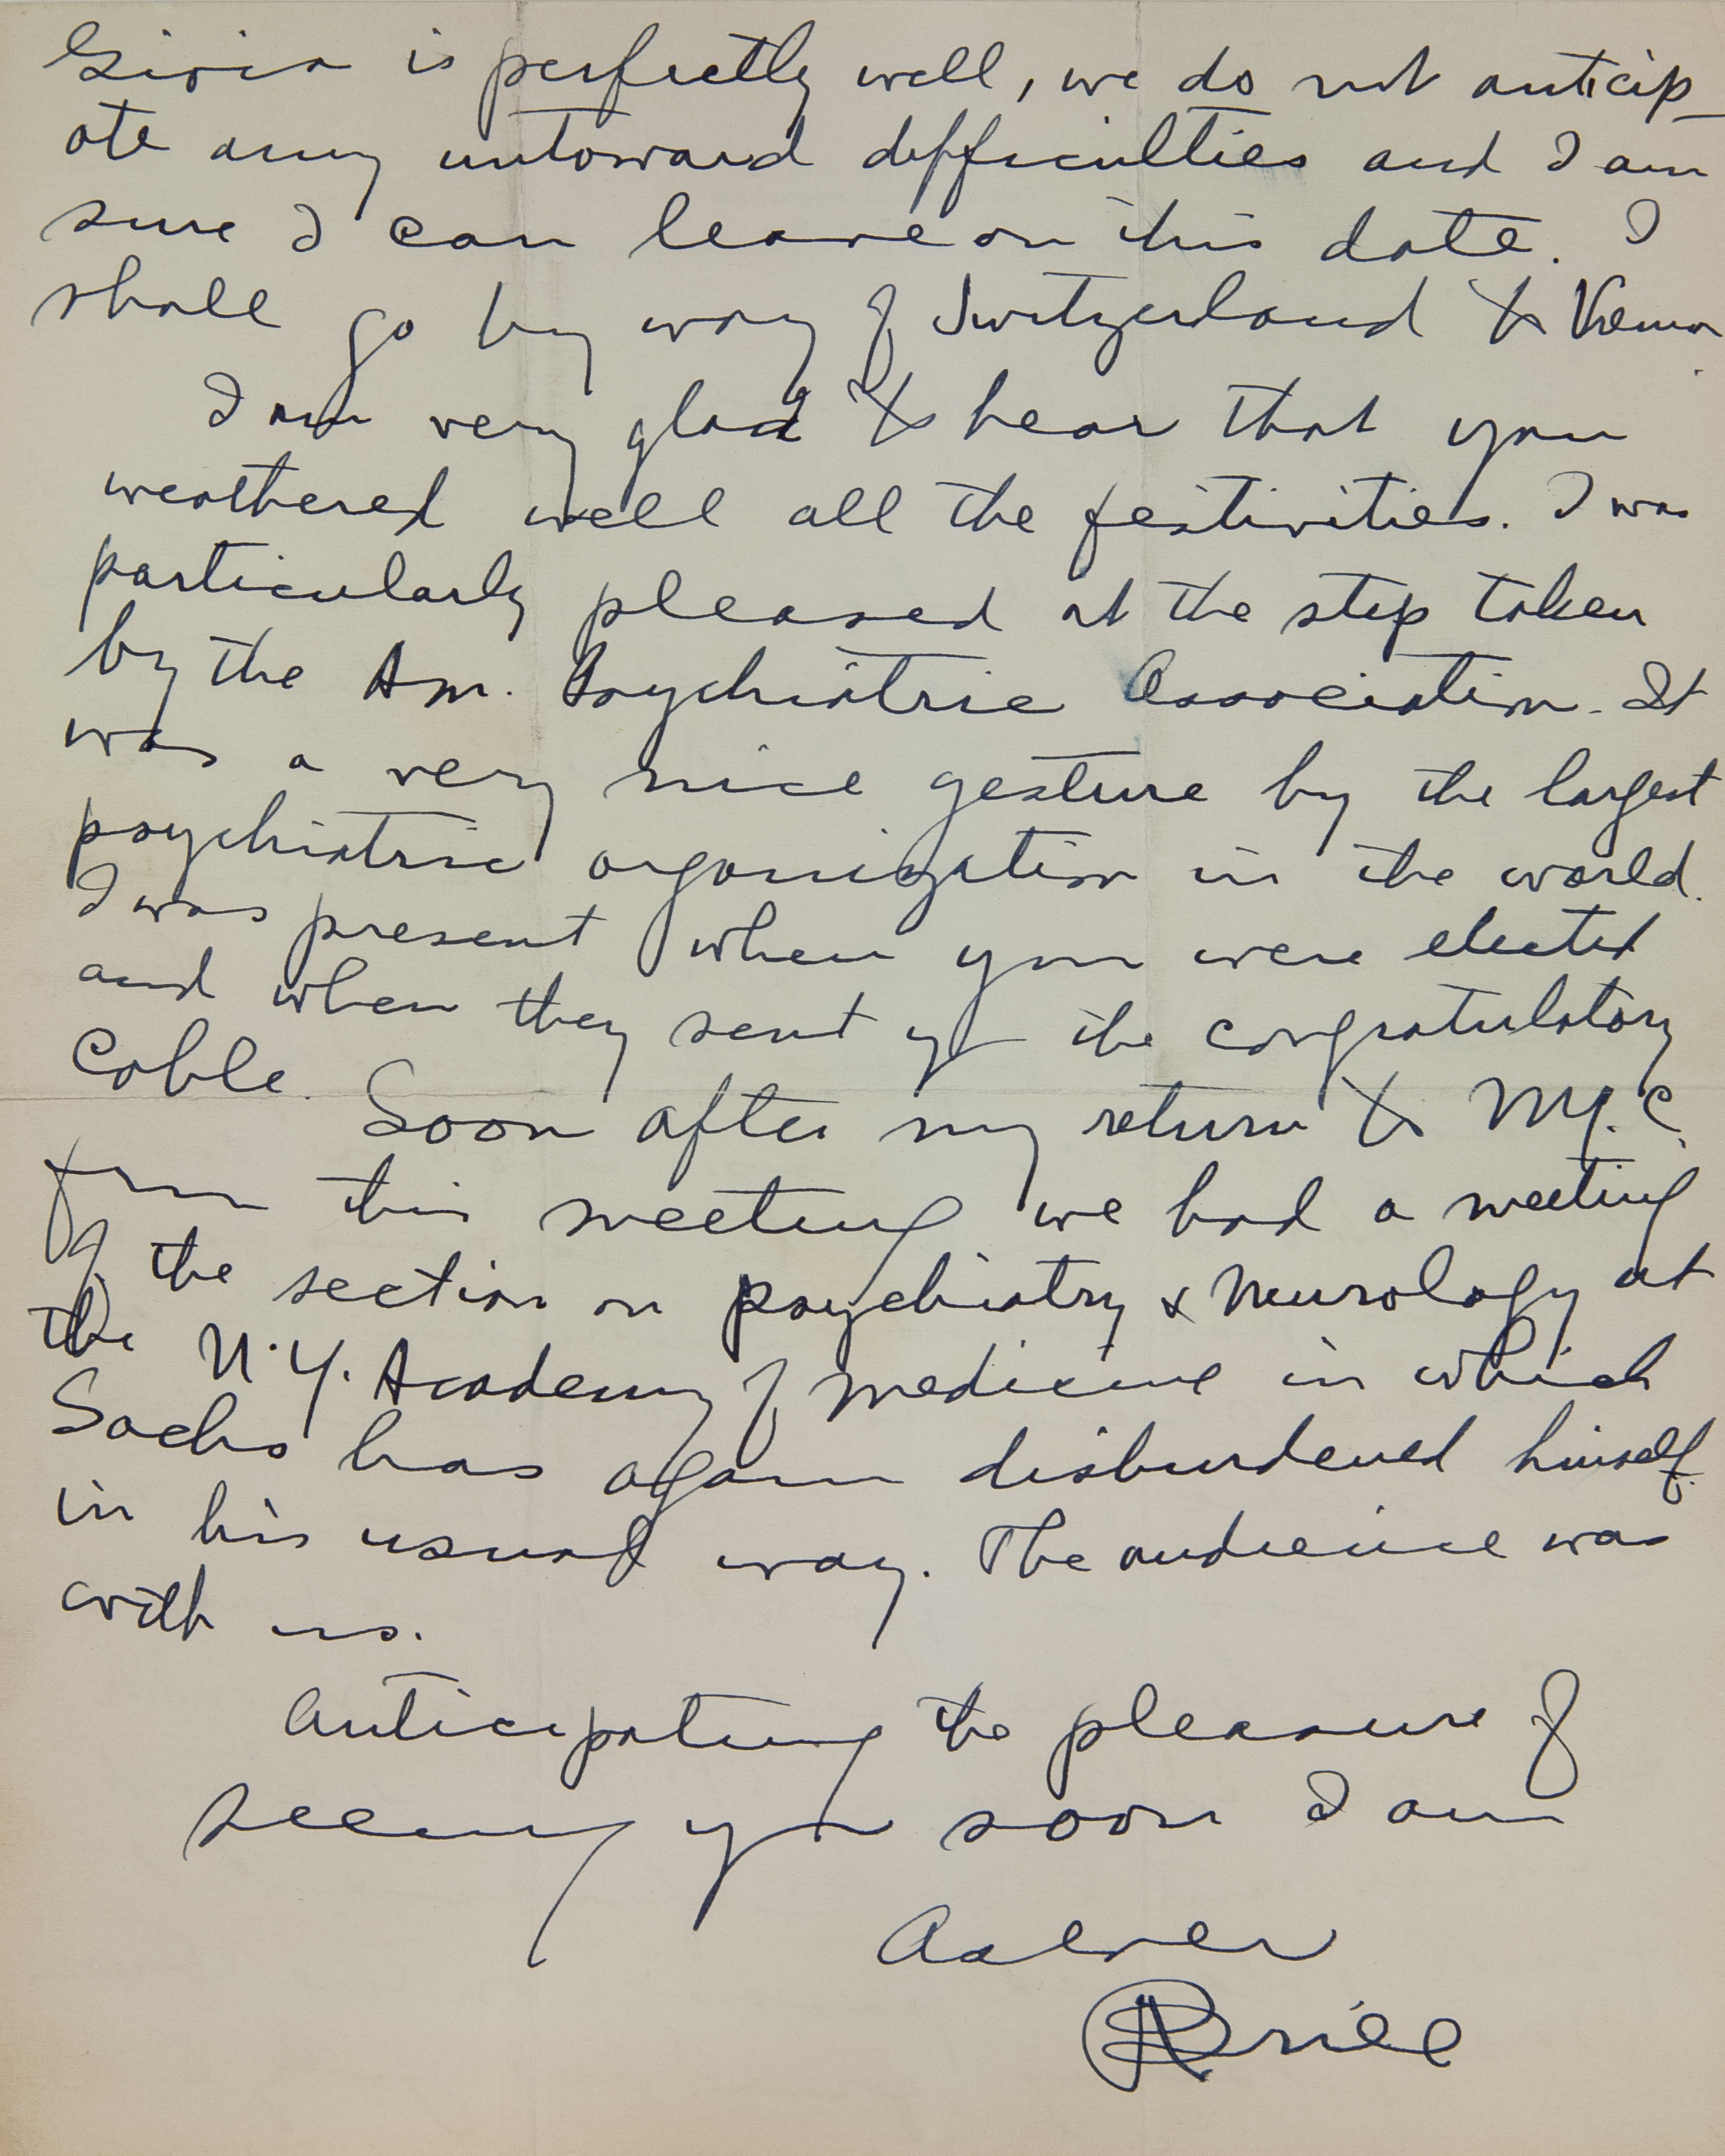 Gioia is perfectly well, we do not anticip-
ate any untoward difficulties and I am
sure I can leave on this date. I
shall go by way of Switzerland to Vienna
I am very glad to hear that you
weathered well all the festivities. I was
particularly pleased at the step taken
by the Am. Psychiatric Association. It
was a very nice gesture by the largest
psychiatric organization in the world.
I was present when you were elected
and when they sent you the congratulatory
Cable. Soon after my return to N.Y.C.
from this meeting we had a meeting
of the section on psychiatry & Neurology at
the N.Y. Academy of Medicine in which
Sachs has again disburdened himself.
in his usual way. The audience was
with us.
Anticipating the pleasure of
seeing you soon I am
As ever
ABrill